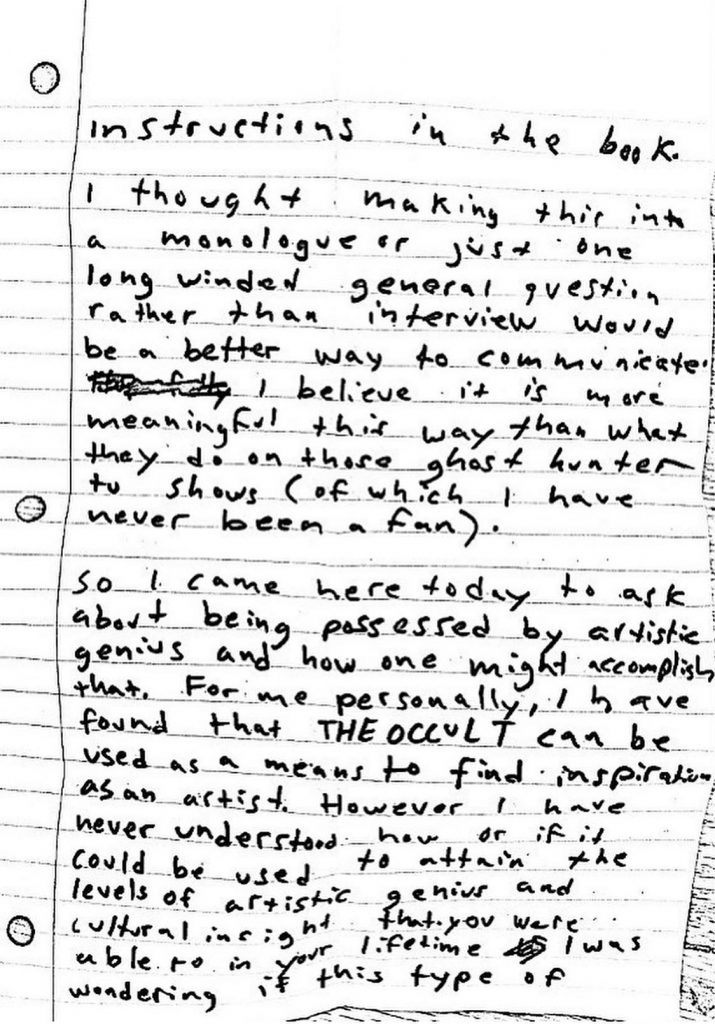 instructions in the book.
I thought making this into
a monologue or just one
long winded general question
rather than interview would
be a better way to communicate.
I believe it is more
meaningful this way than what
they do on those ghost hunter
tv shows (of which I have
never been a fan).
So I came here today to ask
about being possessed by artistic
genius and how one might accomplish
that. For me personally, I have
found that THE OCCULT can be
used as a means to find inspiration
as an artist. However I have
never understood how or if it
could be used to attain the
levels of artistic genius and
cultural insight that you were
able to in your lifetime I was
wondering if this type of